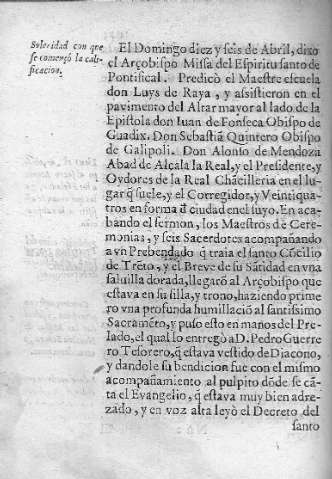 Soleridad con que
se començò la cali-
ficacion.
El Domingo diez y seis de Abril, dixo
el Arçobispo Missa del Espiritu santo de
Pontifical. Predicò el Maestre escuela
don Luys de Raya, y assistieron en el
pavimento del Altar mayor al lado de la
Epistola don Iuan de Fonseca Obispo de
Guadix. Don Sebastiā Quintero Obispo
de Galipoli. Don Alonso de Mendoza
Abad de Alcala la Real, y el Presidente, y
Oydores de la Real Chācilleria en el lu-
gar q̄ suele, y el Corregidor, y Veintiqua-
tros en forma đ ciudad en el suyo. En aca-
bando el sermon, los Maestros de Cere-
monias, y seis Sacerdotes acompañando
a vn Prebendado q̄ traìa el santo Cōcilio
de Trēto, y el Breve de su Sātidad en vna
salvilla dorada, llegarō al Arçobispo que
estava en su silla, y trono, haziendo prime
ro vna profunda humillaciō al santissimo
Sacramēto, y puso esto en manos del Pre-
lado, el qual lo entregò a D. Pedro Guerre
ro Tesorero, q̄ estava vestido de Diacono,
y dandole su bendicion fue con el mismo
acompañamiento al pulpito dōde se cā-
ta el Evangelio, q̄ estava muy bien adre-
zado, y en voz alta leyò el Decreto del
santo